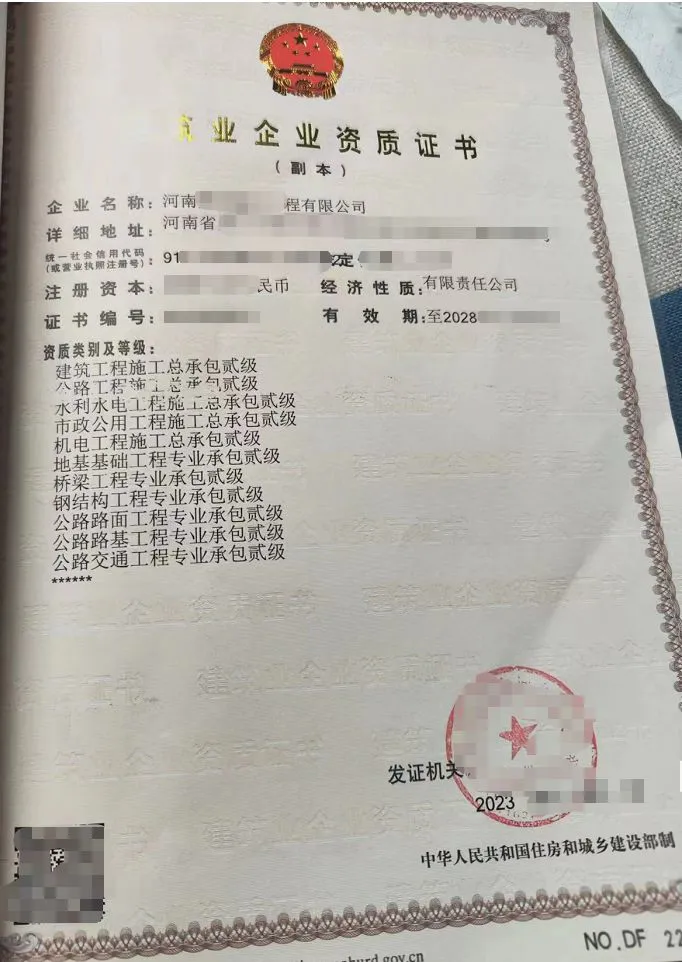 业企业资质证书
（副本）
企业名称：河南 程有限公司
详细地址：河南省
统一社会信用代码
(或营业执照注册号)：91 定
注册资本： 民币 经济性质：有限责任公司
证书编号： 有效期：至2028
资质类别及等级：
建筑工程施工总承包贰级
公路工程施工总承包贰级
水利水电工程施工总承包贰级
市政公用工程施工总承包贰级
机电工程施工总承包贰级
地基基础工程专业承包贰级
桥梁工程专业承包贰级
钢结构工程专业承包贰级
公路路面工程专业承包贰级
公路路基工程专业承包贰级
公路交通工程专业承包贰级
******
发证机关
2023
中华人民共和国住房和城乡建设部制
NO.DF 22
gov.cn